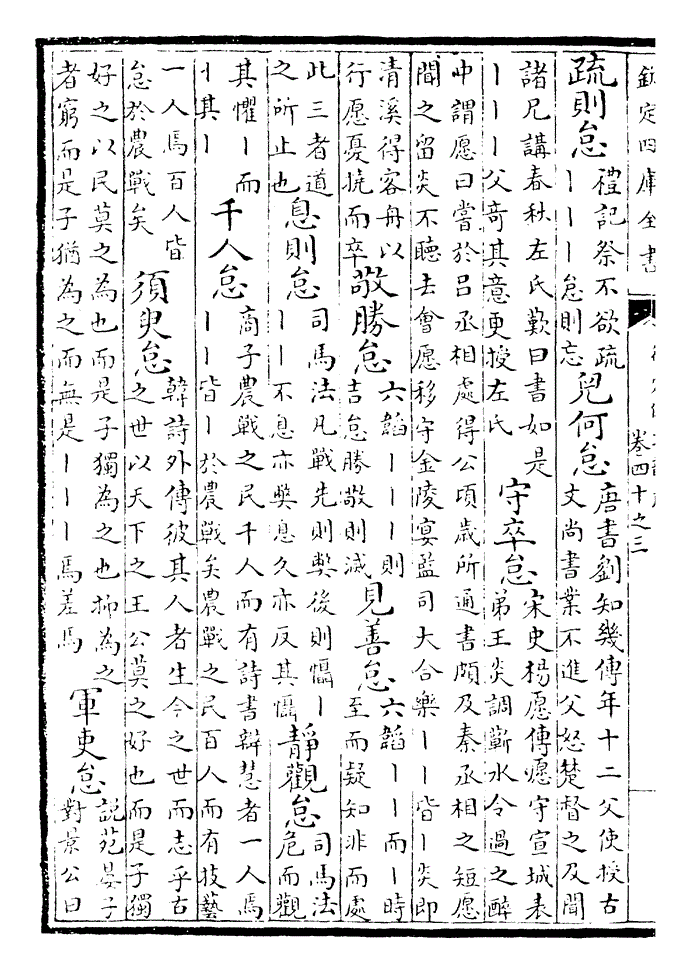 欽定四庫全書
卷四十之三
疏則怠
禮記祭不欲疏
丨丨丨怠則忘
兒何怠
唐書劉知幾傳年十二父使授古
文尚書業不進父怒楚督之及聞
諸兄講春秋左氏歎曰書如是
丨丨丨父奇其意更授左氏
守卒怠
宋史楊愿傳愿守宣城表
弟王炎調蘄水令過之醉
中謂愿曰嘗於呂丞相處得公頃歲所通書頗及秦丞相之短愿
聞之留炎不聽去會愿移守金陵宴監司大合樂丨丨皆丨炎即
清溪得客舟以
行愿憂撓而卒
敬勝怠
六韜丨丨丨則
吉怠勝敬則滅
見善怠
六韜丨丨而丨時
至而疑知非而處
此三者道
之所止也
息則怠
司馬法凡戰先則弊後則懾丨
丨丨不息亦弊息久亦反其懾
靜觀怠
司馬法
危而觀
其懼丨而
丨其丨
千人怠
商子農戰之民千人而有詩書辯慧者一人焉
丨丨皆丨於農戰矣農戰之民百人而有技藝
一人焉百人皆
怠於農戰矣
須臾怠
韓詩外傳彼其人者生今之世而志乎古
之世以天下之王公莫之好也而是子獨
好之以民莫之為也而是子獨為之也抑為之
者窮而是子猶為之而無是丨丨丨焉差焉
軍吏怠
說苑晏子
對景公曰